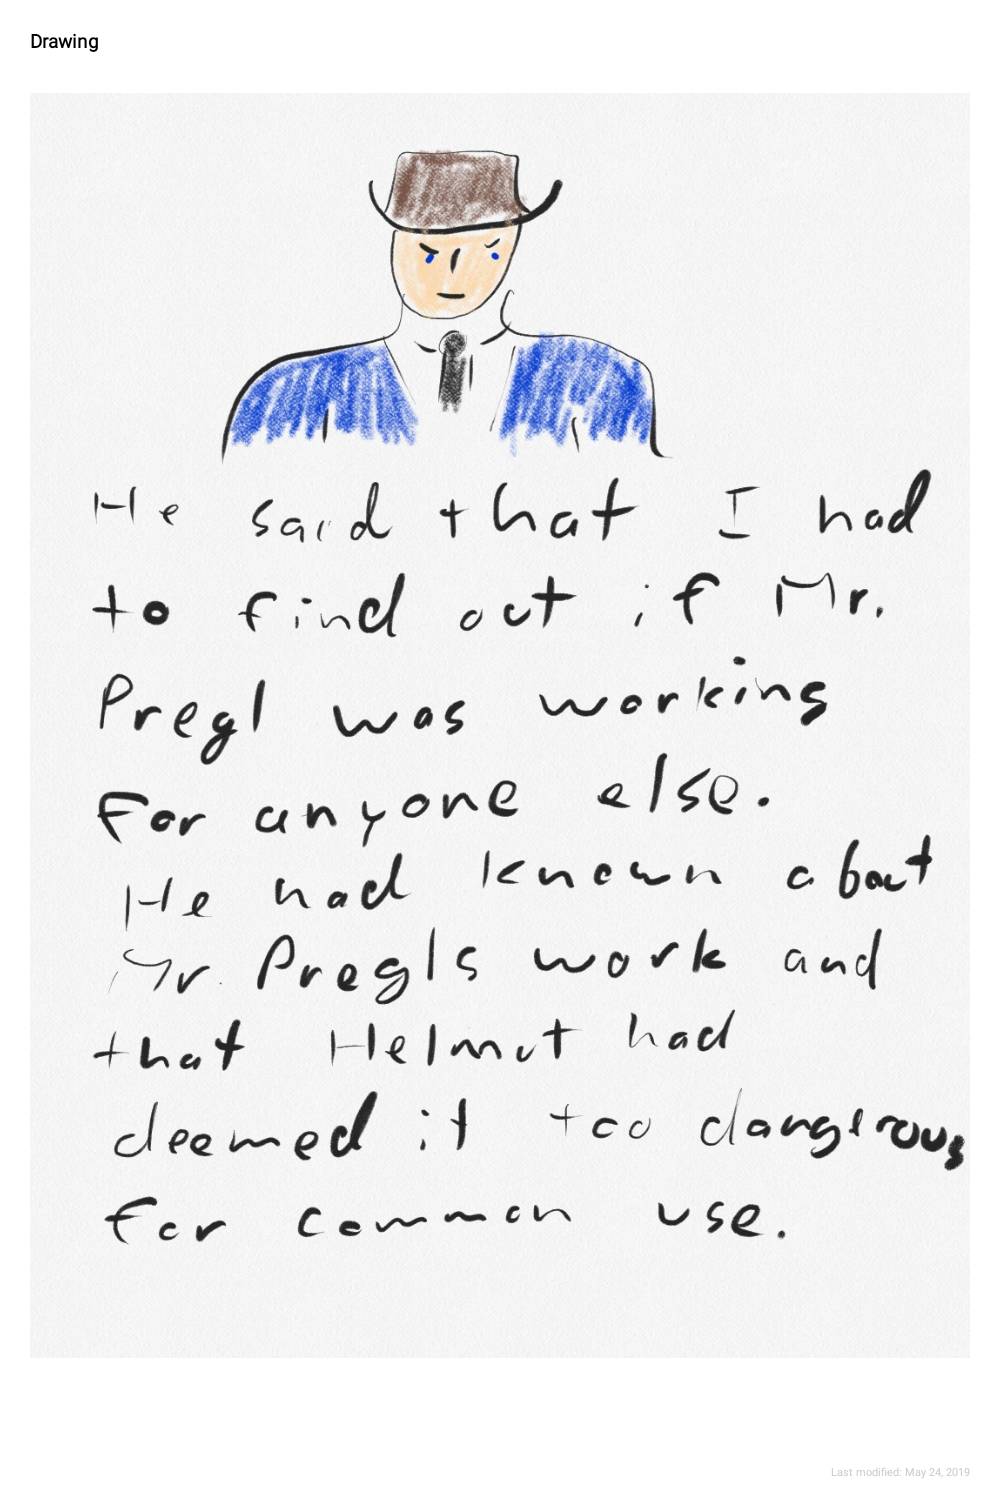 Drawing
He said that I had
to find out if Mr.
Pregl was working
for anyone else.
He had known about
Mr. Pregls work and
that Helmut had
deemed it too dangerous
for common use.
Last modified: May 24, 2019